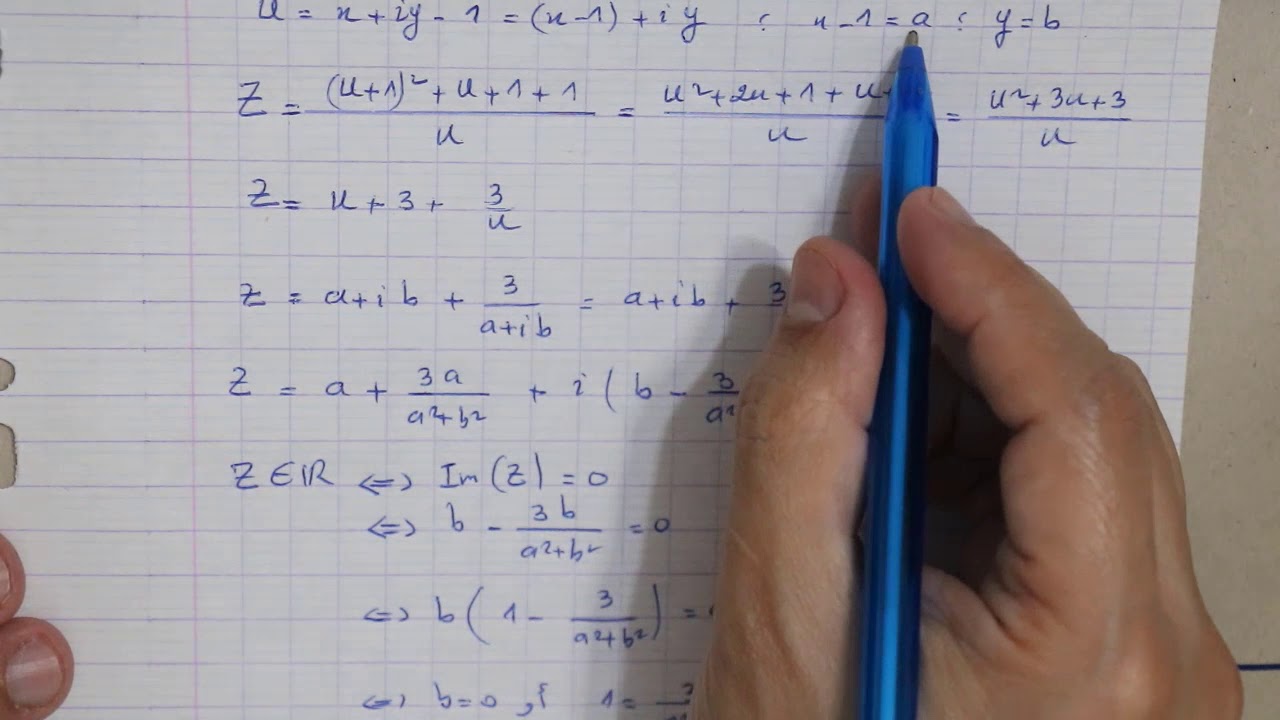 u = x + iy - 1 = (x - 1) + iy ; x - 1 = a ; y = b
Z = \frac{(u+1)^2 + u + 1 + 1}{u} = \frac{u^2 + 2u + 1 + u +}{u} = \frac{u^2 + 3u + 3}{u}
Z = u + 3 + \frac{3}{u}
Z = a + ib + \frac{3}{a+ib} = a + ib + 3
Z = a + \frac{3a}{a^2+b^2} + i ( b - \frac{3}{a^2}
Z ∈ ℝ ⇔ Im(Z) = 0
⇔ b - \frac{3b}{a^2+b^2} = 0
⇔ b ( 1 - \frac{3}{a^2+b^2} ) =
⇔ b = 0 , 1 =